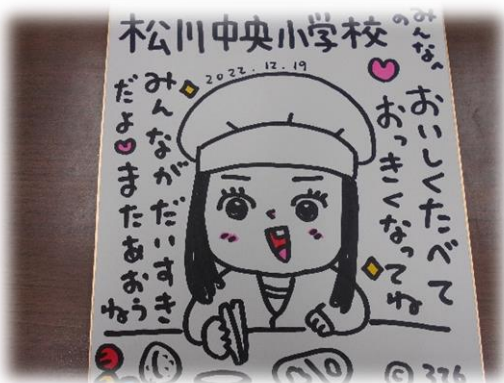 松川中央小学校
のみんなへ
2022.12.19
おいしくたべて
おっきくなってね
みんながだいすき
だよ またあおうね
©326